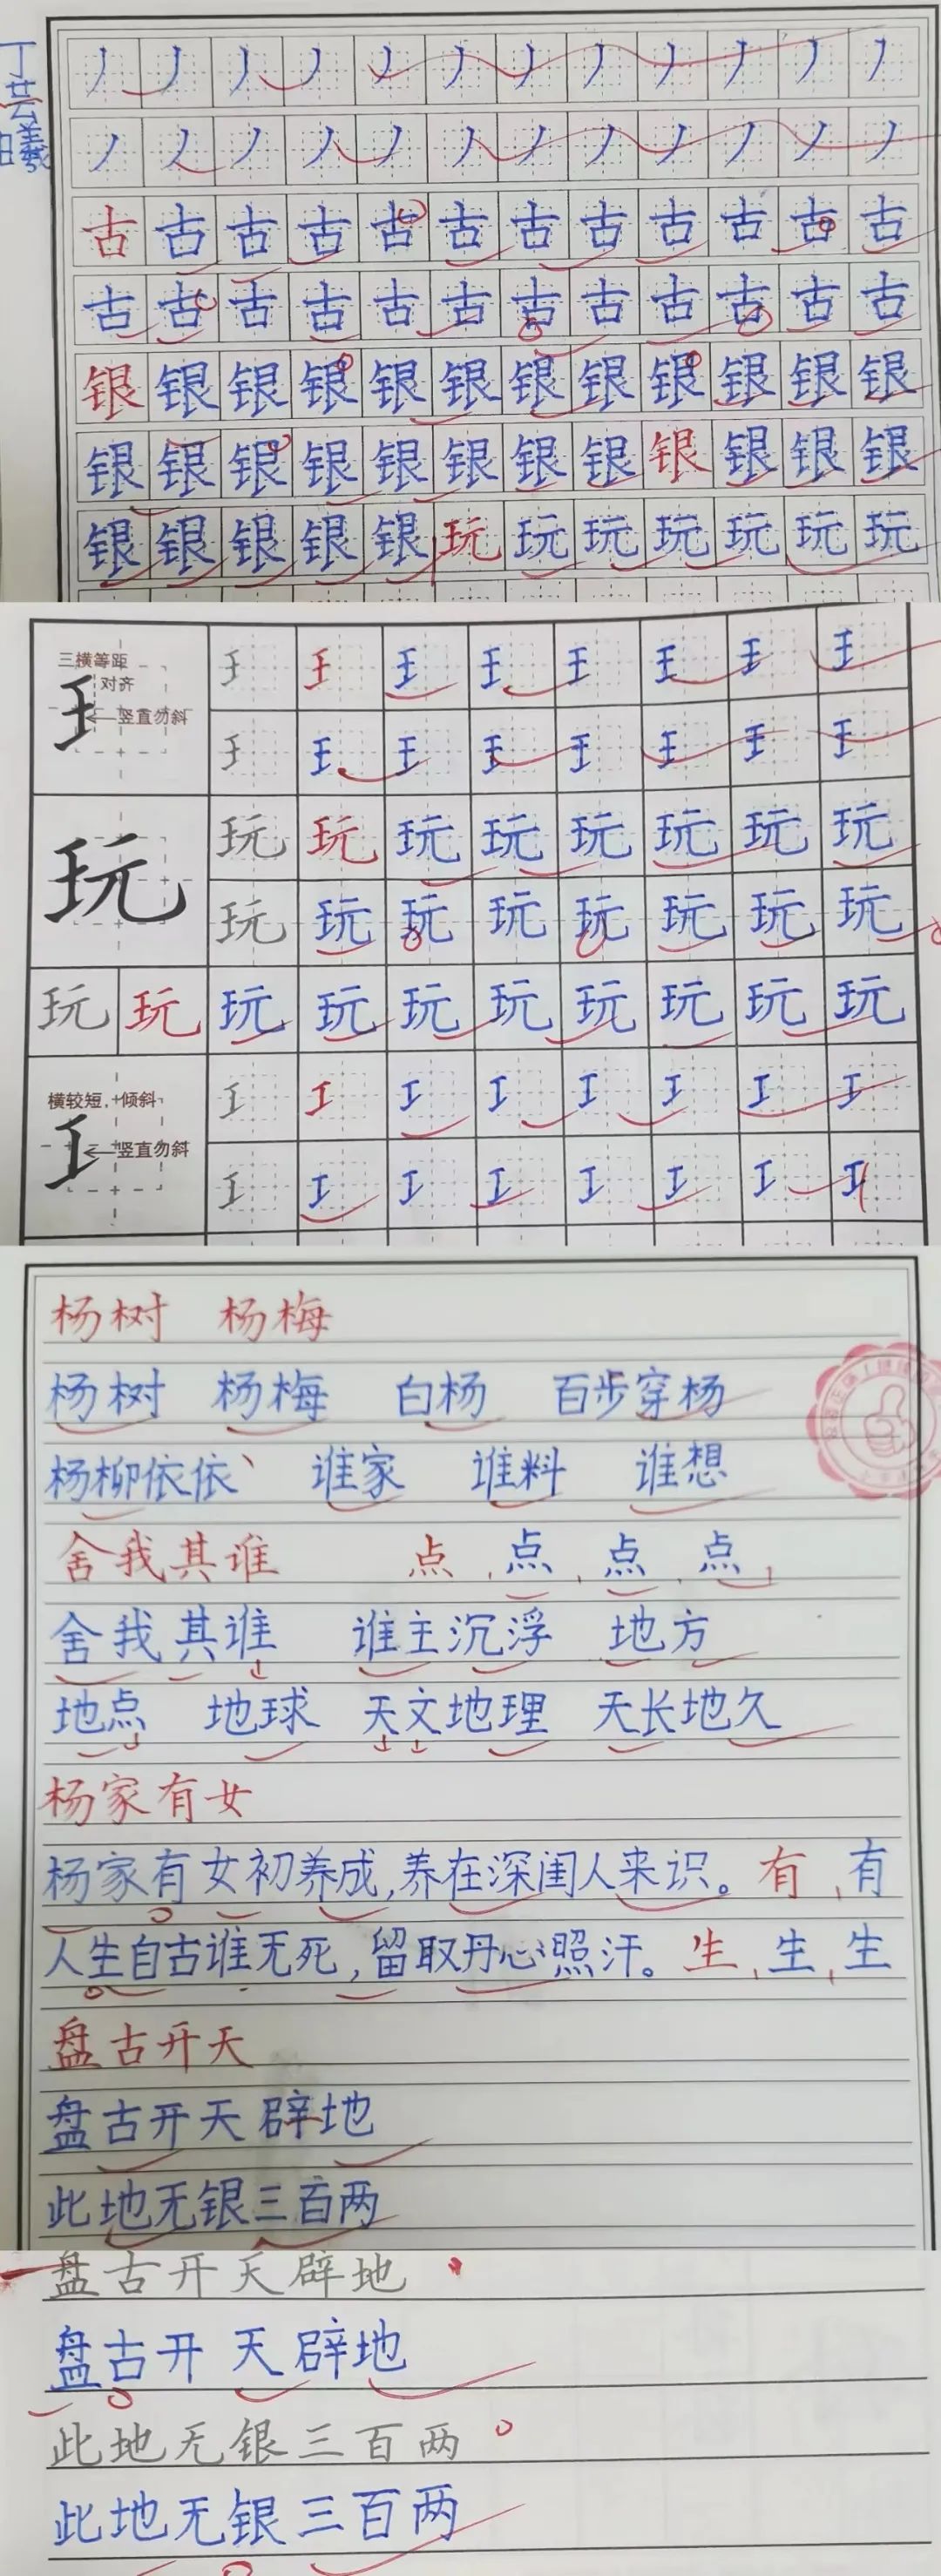 丁芸曦
丿丿丿丿丿丿丿丿丿丿丿丿
丿丿丿丿丿丿丿丿丿丿丿丿
古古古古古古古古古古古古
古古古古古古古古古古古古
银银银银银银银银银银银银
银银银银银银银银银银银银
银银银银银玩玩玩玩玩玩玩
三横等距
对齐
竖直勿斜
玩 玩玩玩玩玩玩玩玩
玩玩玩玩玩玩玩玩
玩玩玩玩玩玩玩玩玩玩
横较短,倾斜
竖直勿斜
杨树 杨梅
杨树 杨梅 白杨 百步穿杨
杨柳依依、 谁家 谁料 谁想
舍我其谁 点 点 点 点
舍我其谁 谁主沉浮 地方
地点 地球 天文地理 天长地久
杨家有女
杨家有女初养成,养在深闺人来识。有 有
人生自古谁无死,留取丹心照汗。生 生 生
盘古开天
盘古开天辟地
此地无银三百两
盘古开天辟地
盘古开天辟地
此地无银三百两
此地无银三百两